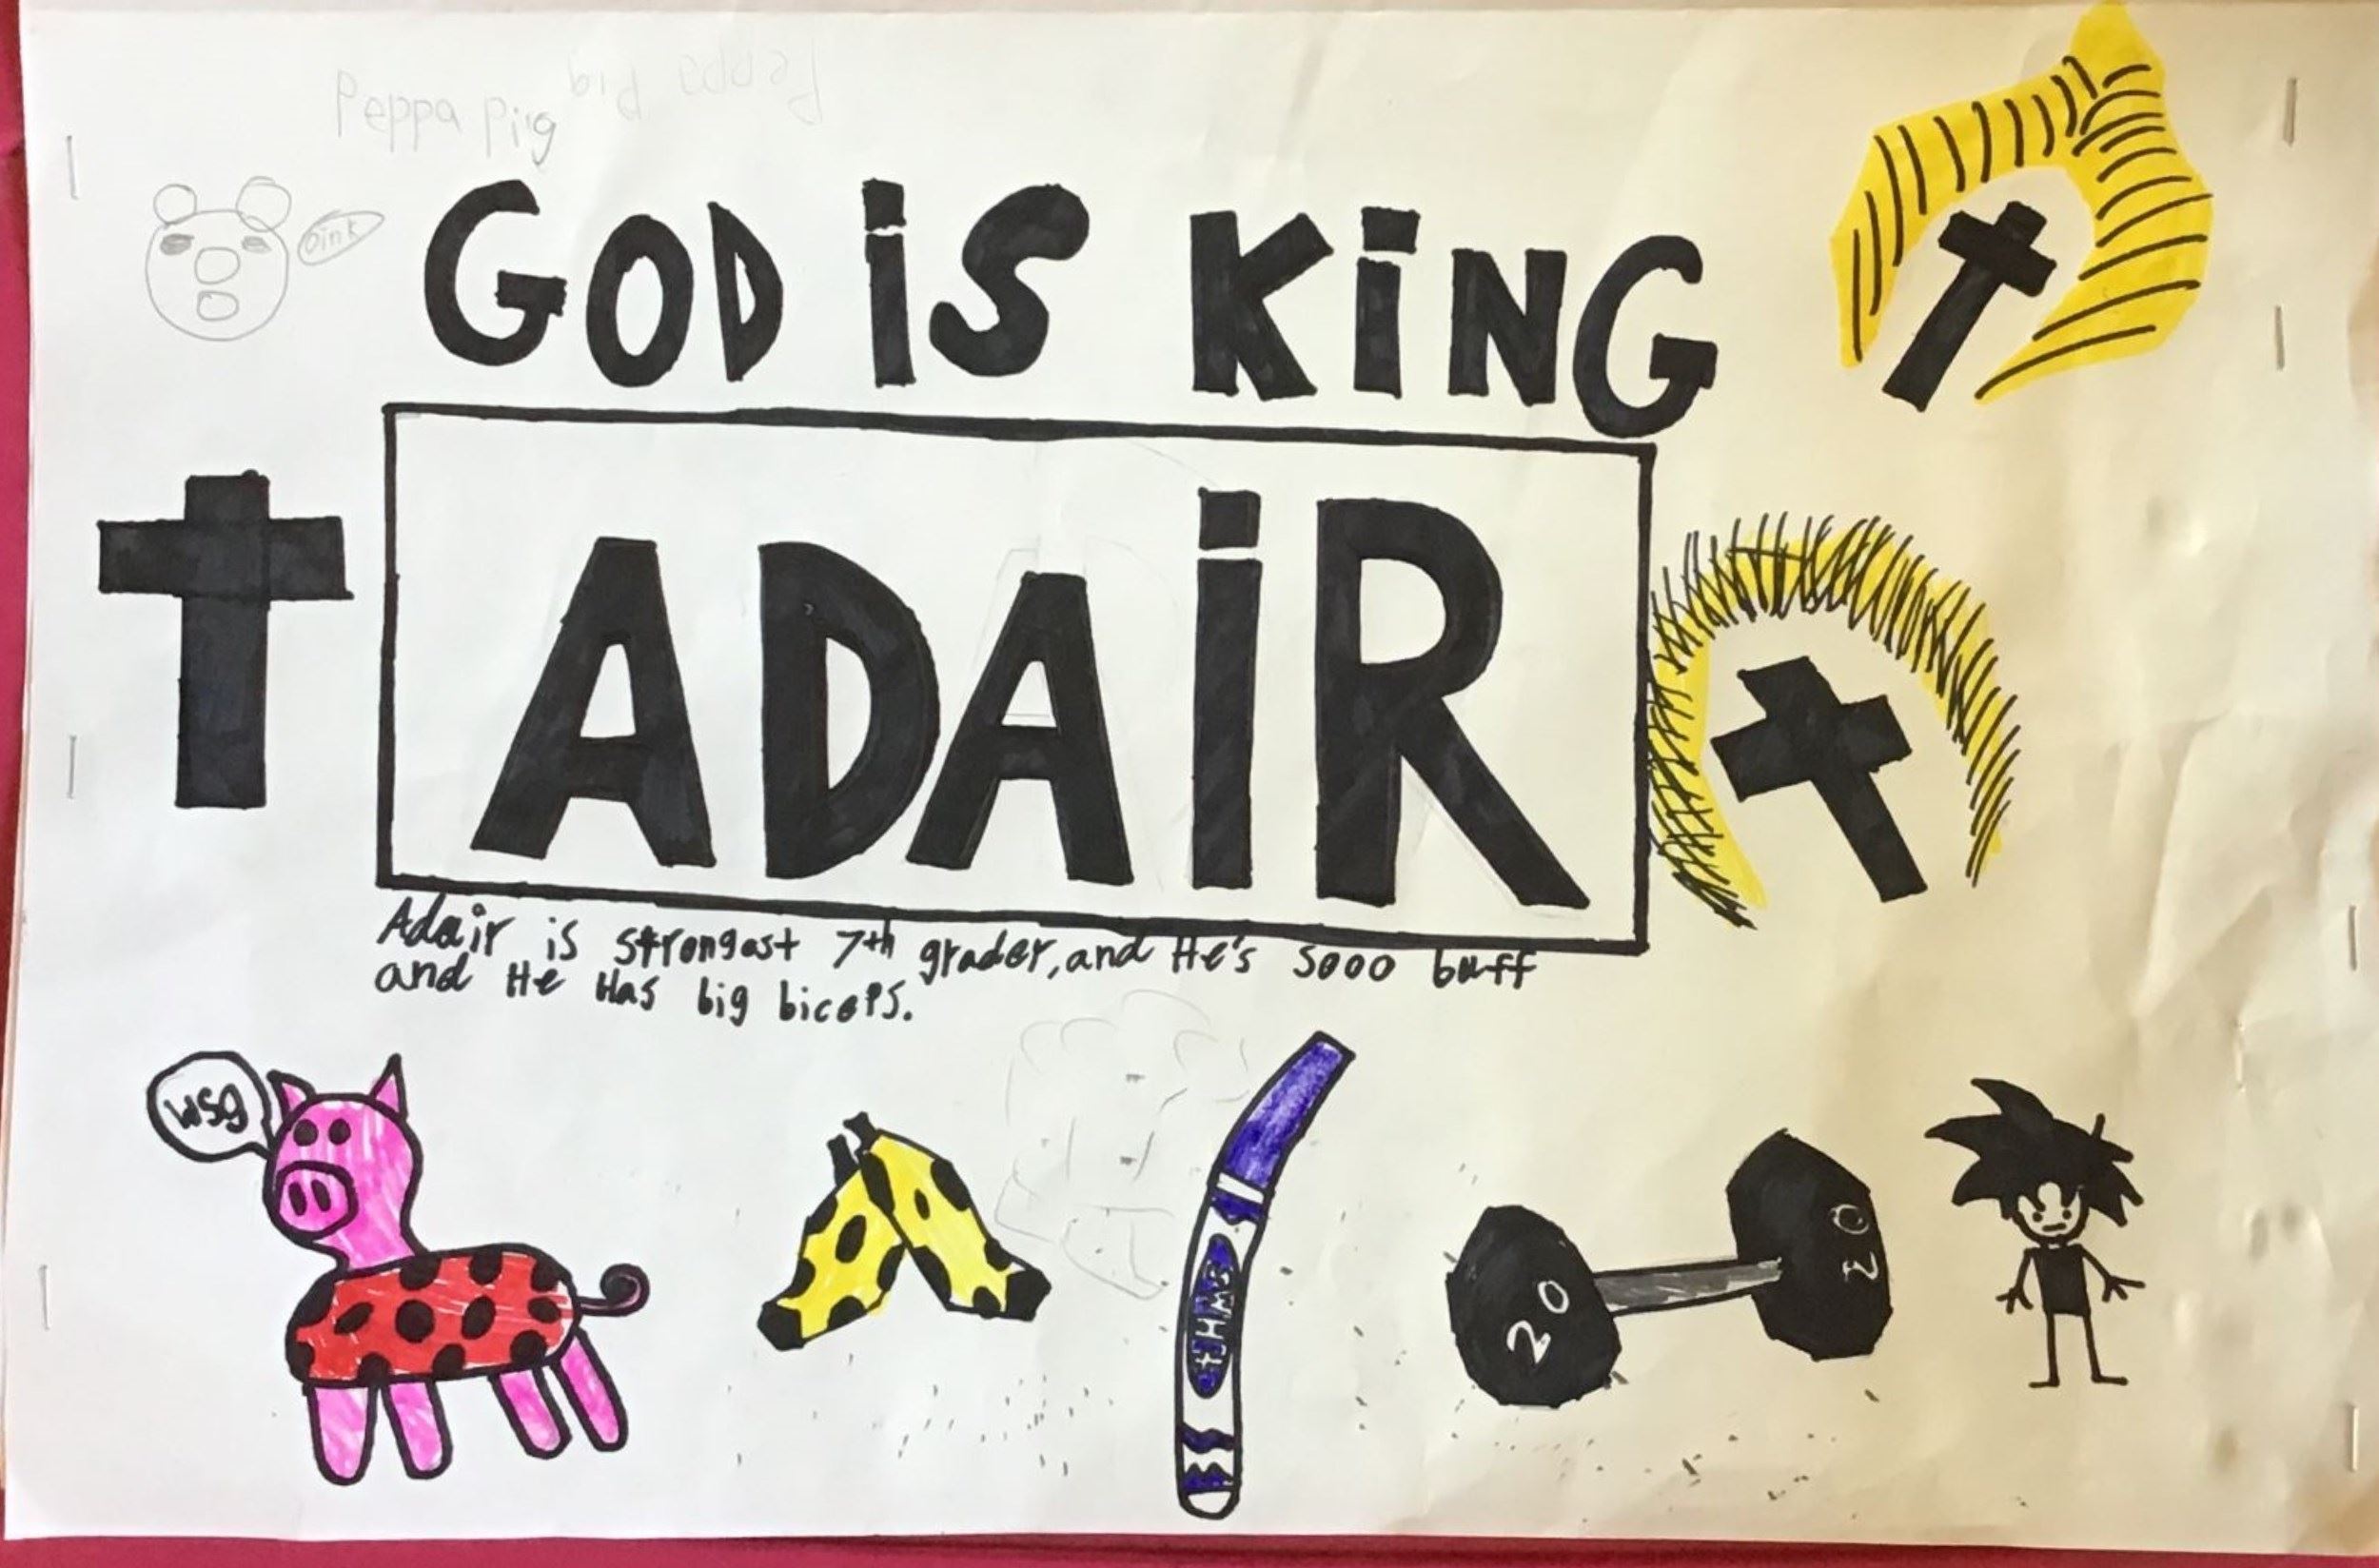 Peppa pig
Peppa pig
oink
GOD iS KiNG
ADAiR
Adair is strongest 7th grader, and He's sooo buff
and He Has big biceps.
wsg
20
20